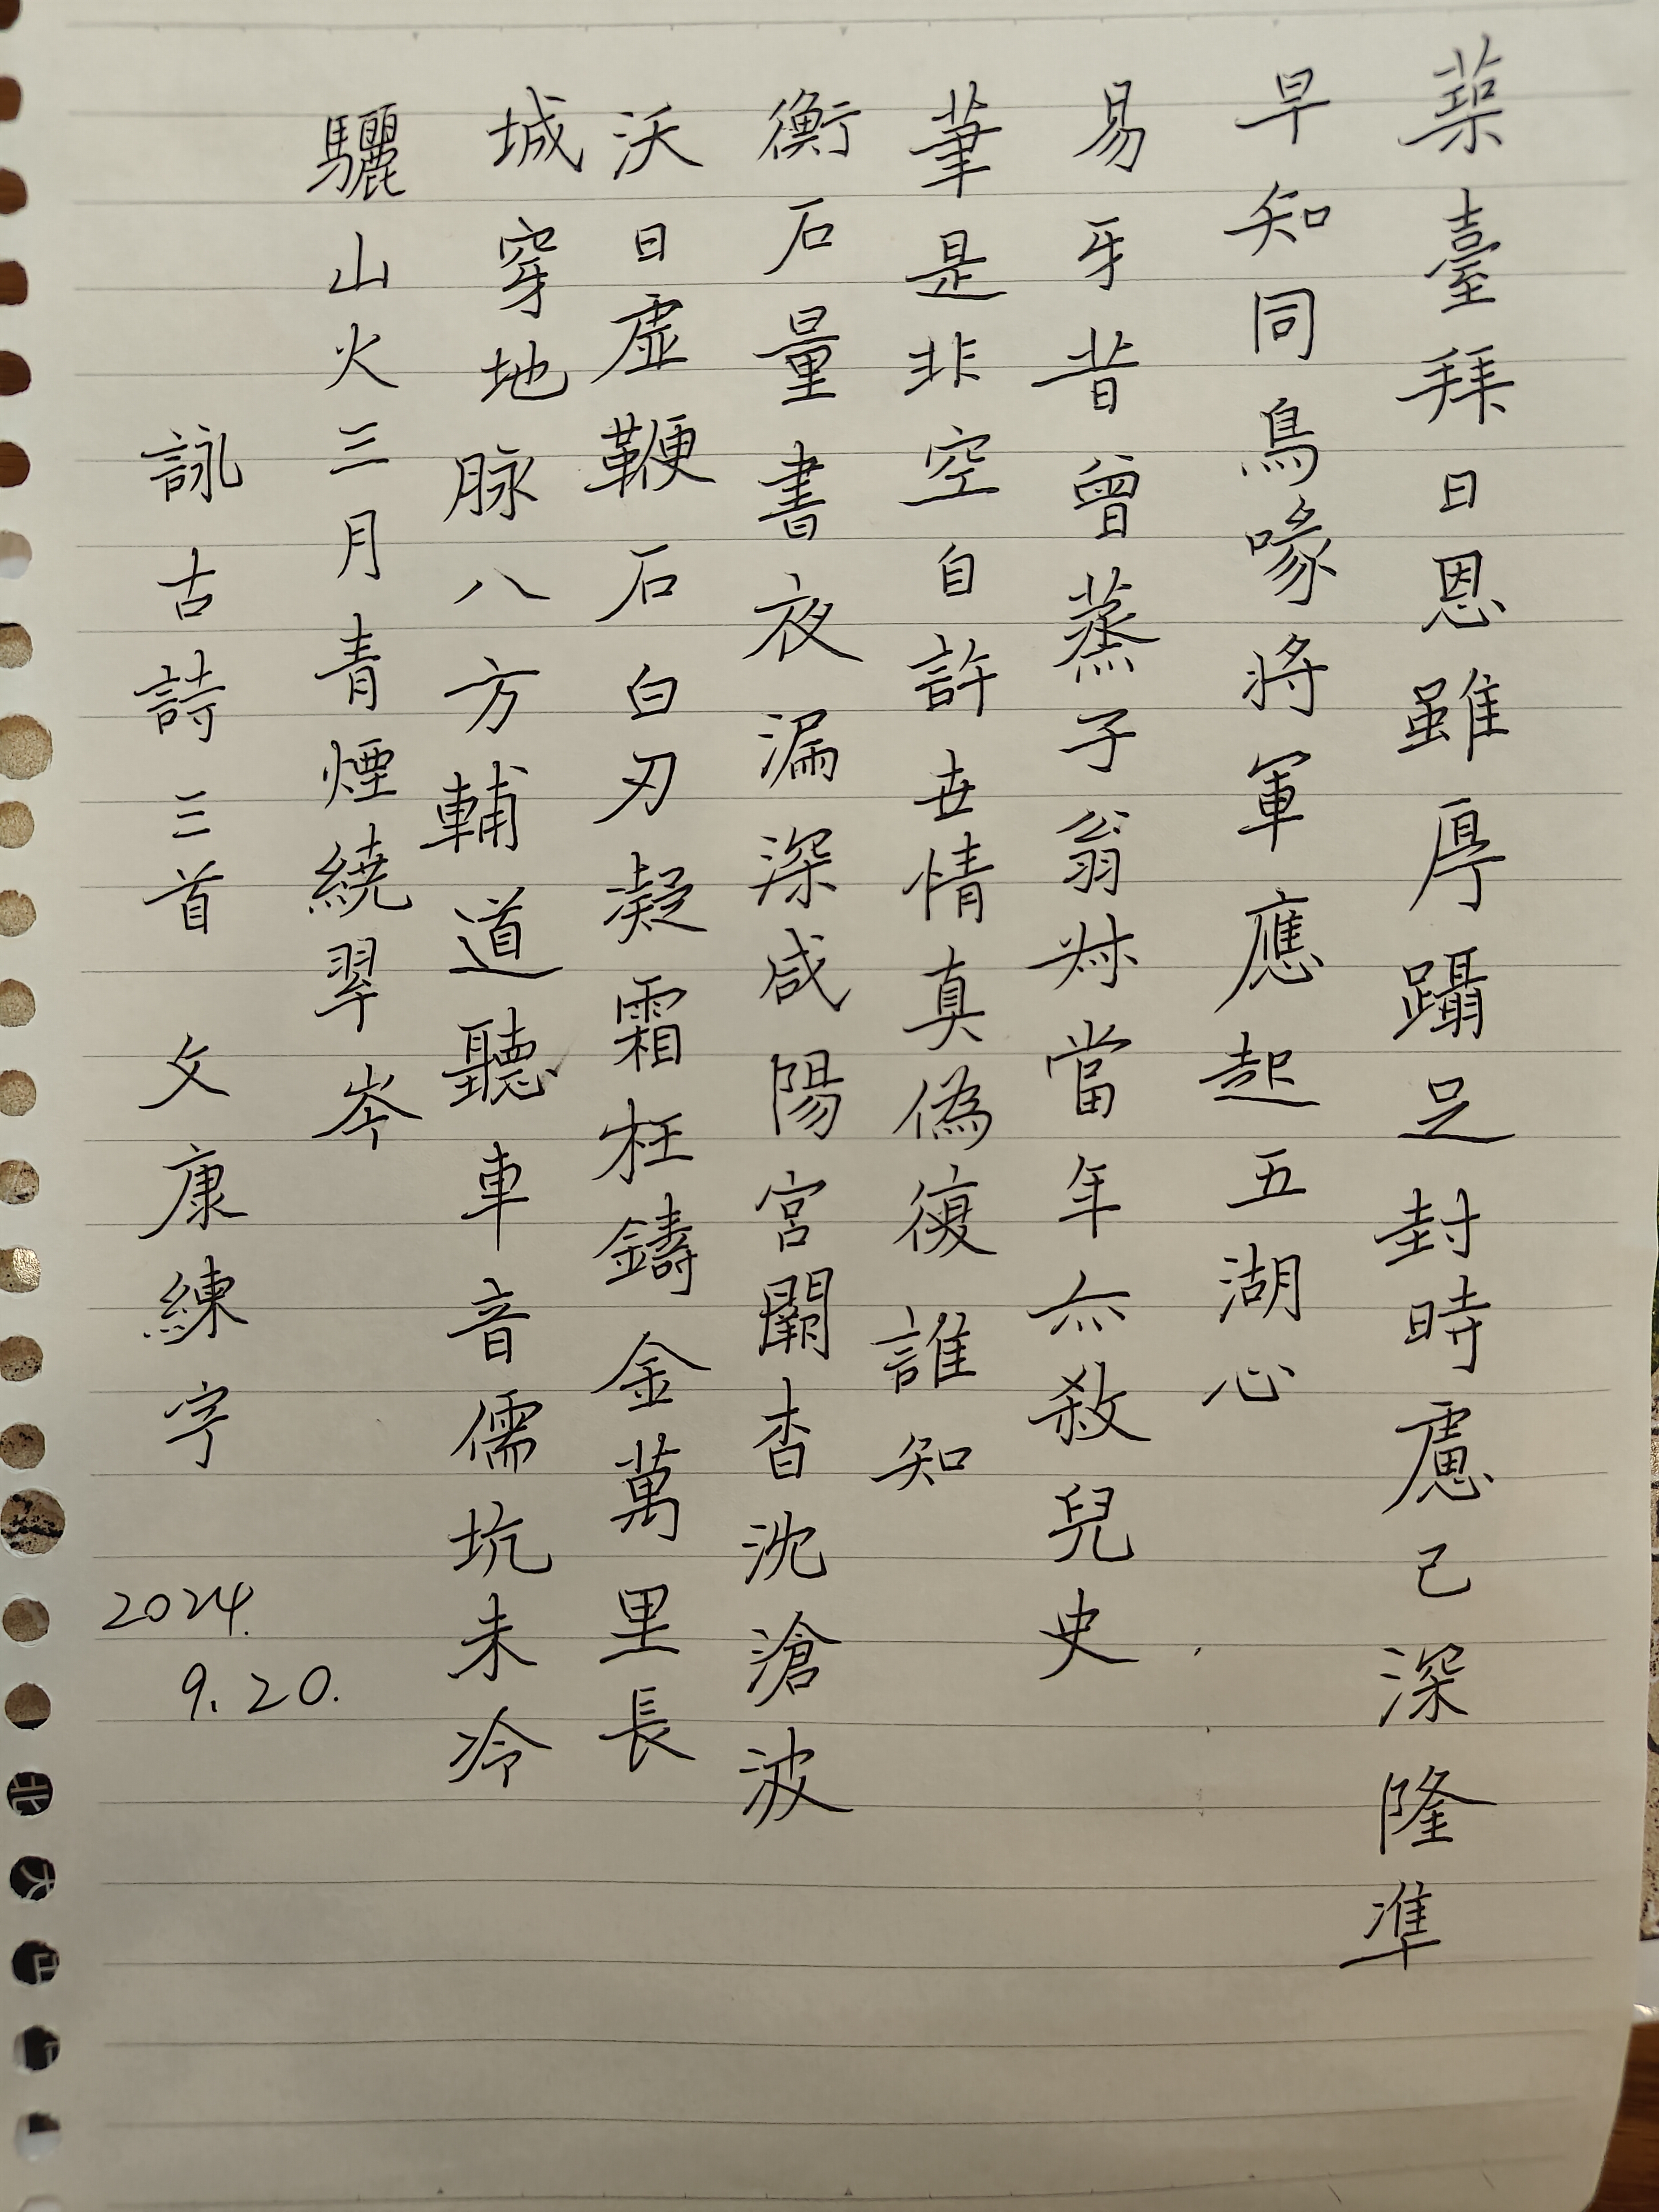 築臺拜日恩雖厚躡足封時慮已深隆準
早知同鳥喙將軍應起五湖心
易牙昔曾蒸子翁對當年亦殺兒史
筆是非空自許世情真偽復誰知
衡石量書夜漏深咸陽宮闕杳沈滄波
沃日虛鞭石白刃凝霜枉鑄金萬里長
城穿地脉八方輔道聽車音儒坑未冷
驪山火三月青煙繞翠岑
詠古詩三首 文康練字
2024.
9.20.